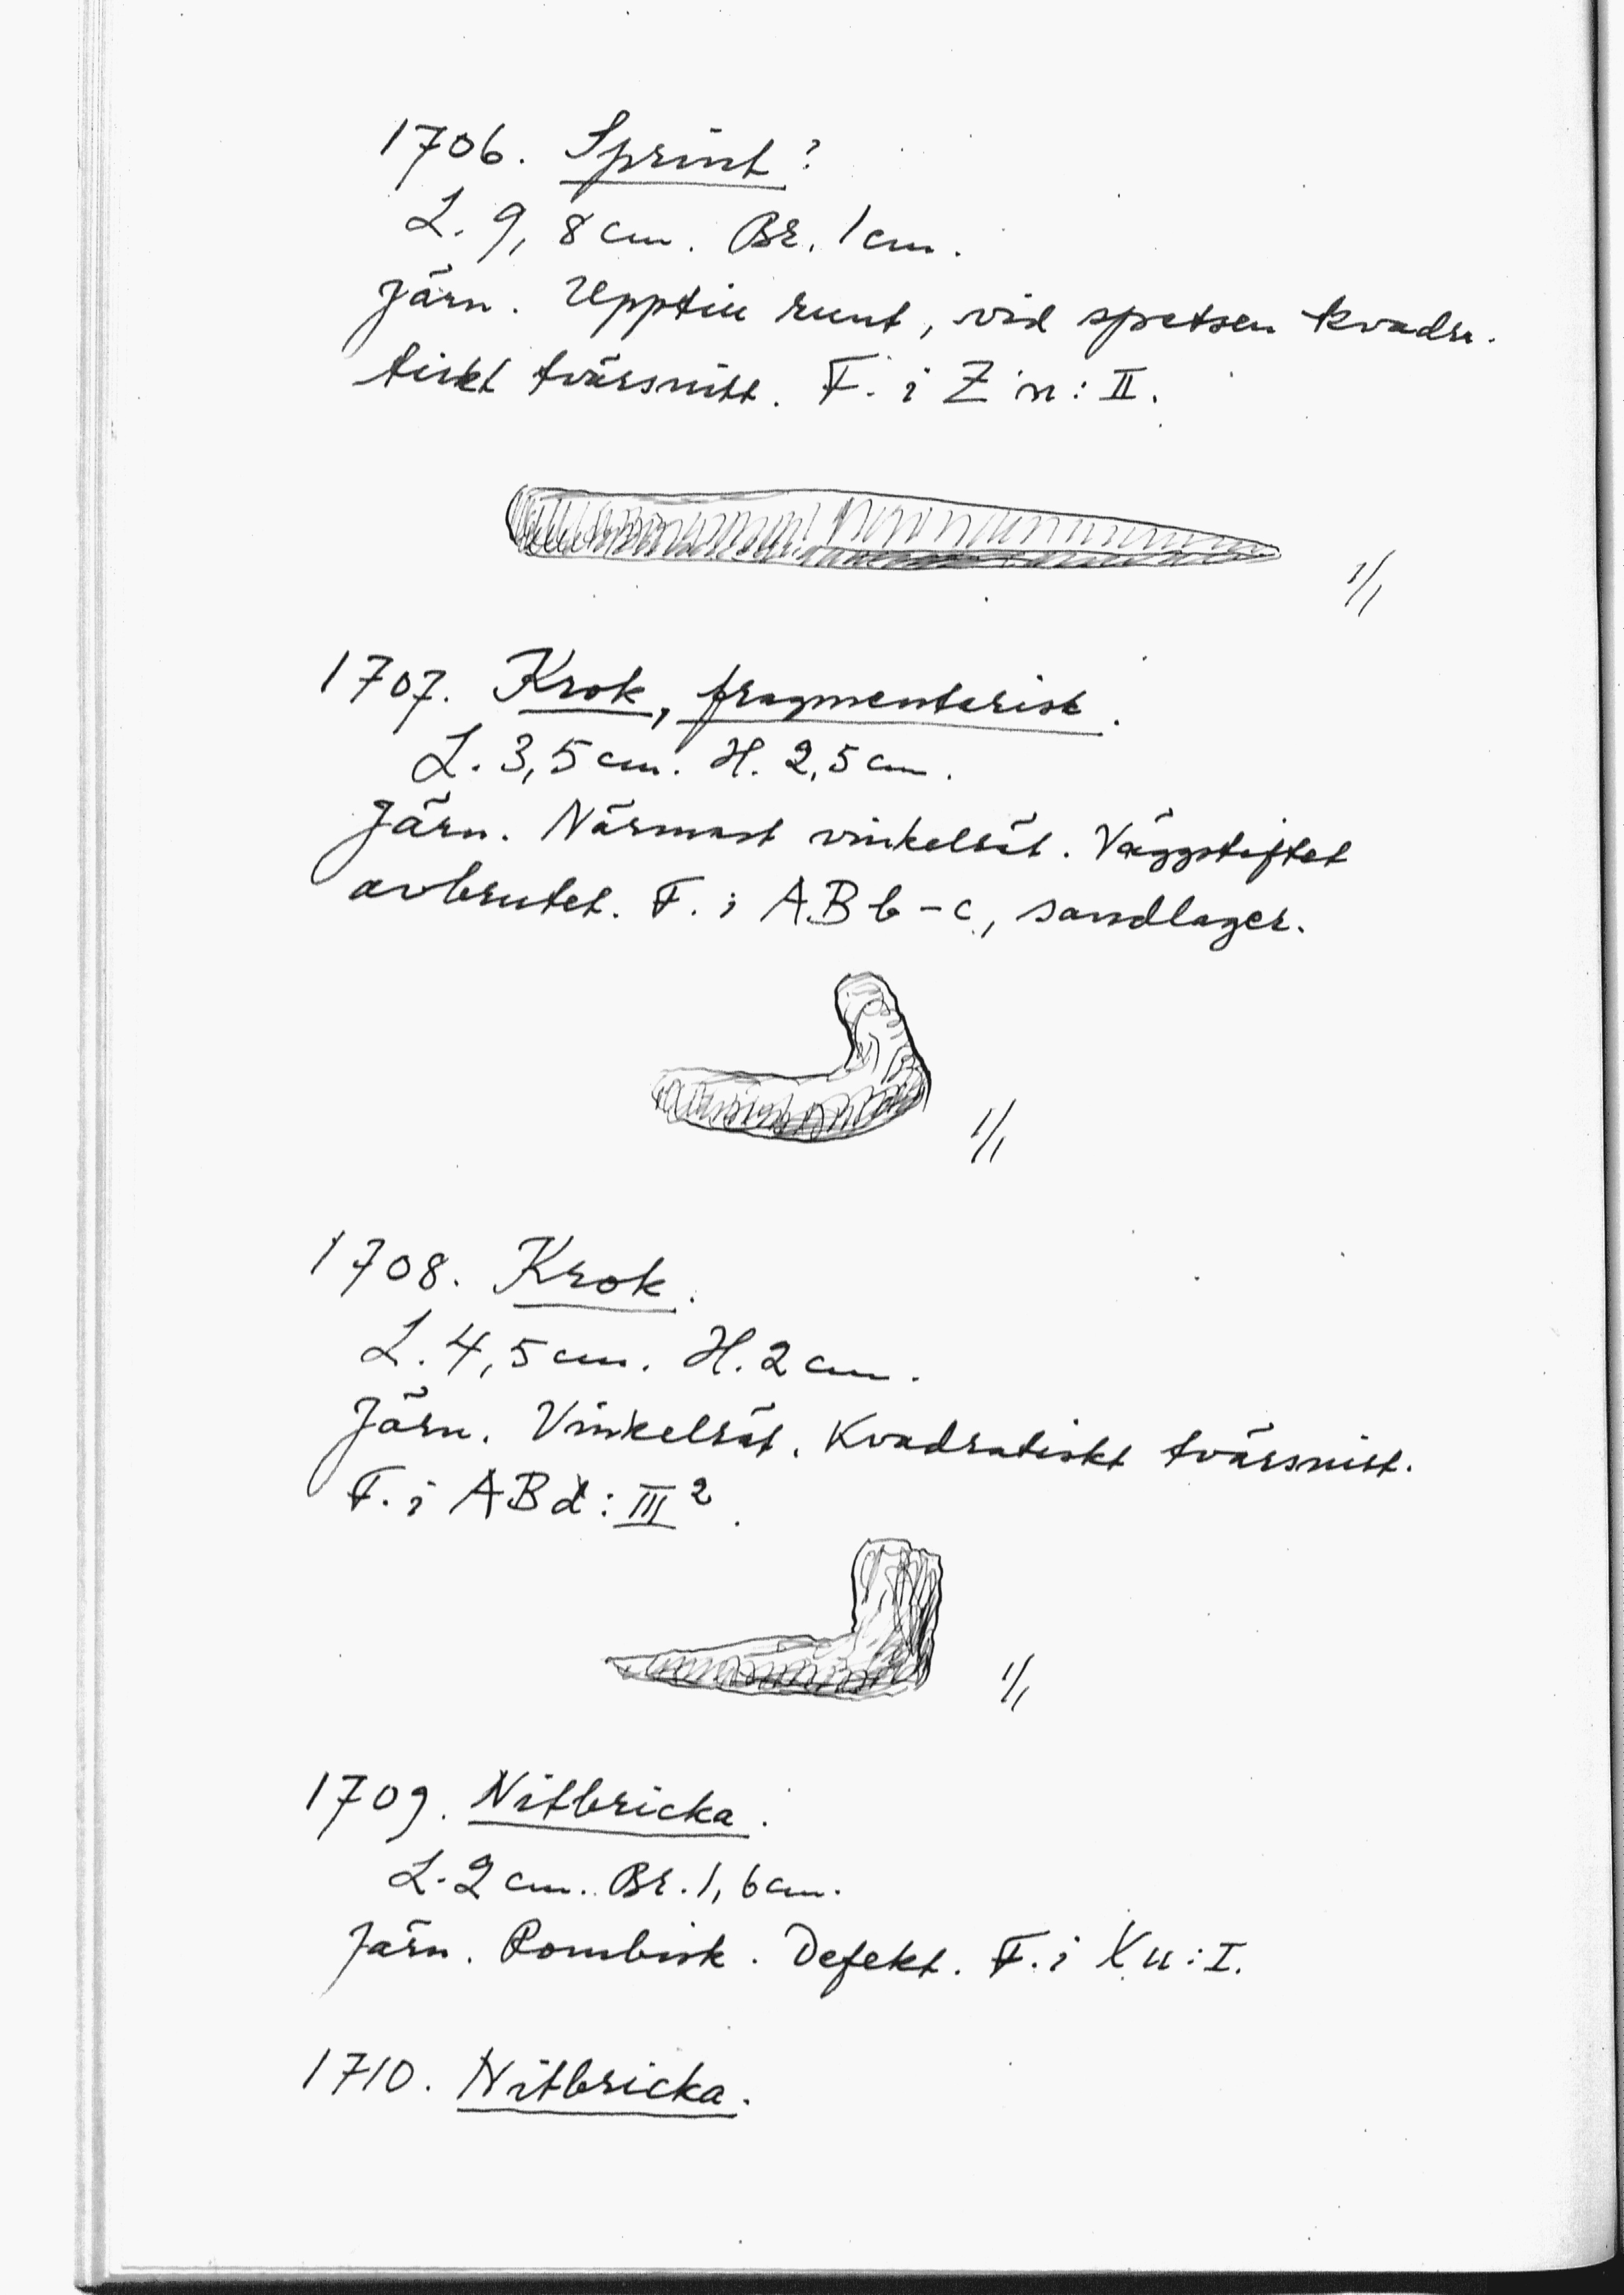 1706. Sprint?
L. 9,8 cm. Br. 1 cm.
Järn. Upptill runt, vid spetsen kvadra-
tiskt tvärsnitt. F. i Z n: II.
1/1
1707. Krok, fragmentarisk.
L. 3,5 cm. H. 2,5 cm.
Järn. Närmast vinkelrät. Väggstiftet
avbrutet. F. i AB b-c, sandlager.
1/1
1708. Krok.
L. 4,5 cm. H. 2 cm.
Järn. Vinkelrät. Kvadratiskt tvärsnitt.
F. i AB d: III².
1/1
1709. Nitbricka.
L. 2 cm. Br. 1,6 cm.
Järn. Rombisk. Defekt. F. i X u: I.
1710. Nitbricka.